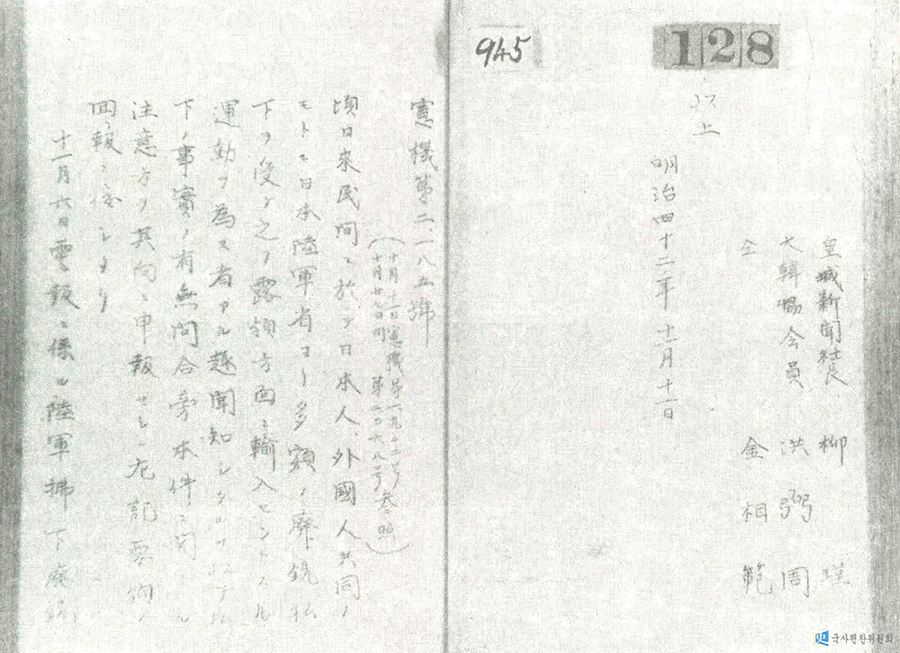 945
128
皇城新聞社長 柳 瑾
大韓協会員 洪弼周
仝 金相範
以上
明治四十二年十一月十一日
憲機第二一八五號
頃日來民間ニ於テ日本人、外國人共同ノ
モトニ日本陸軍省ヨリ多額ノ廢銃払
下ヲ受ケ之ヲ露領方面ニ輸入セントスル
運動ヲ為ス者アル趣聞知シタル
下ノ事實ノ有無問合旁本件ニ関スル
注意方ヲ其向ニ申報セシニ左記要領ノ
回報ニ接シタリ
十一月六日電報ニ係ル陸軍拂下廢銃
国史편찬위원회